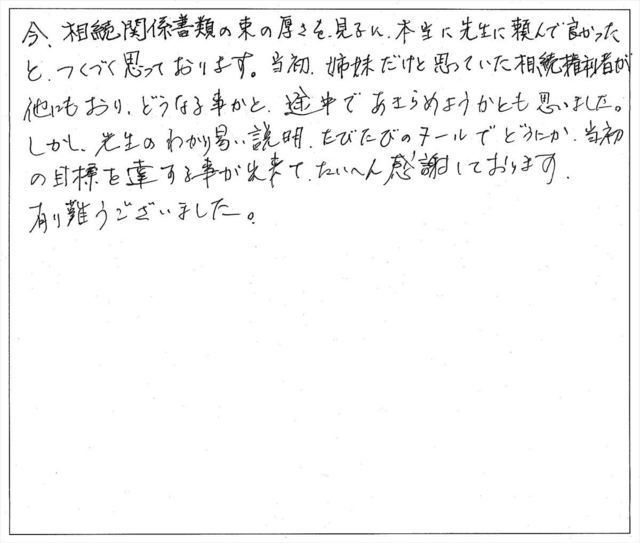 今、相続関係書類の束の厚さを見るに、本当に先生に頼んで良かった
と、つくづく思っております。当初、姉妹だけと思っていた相続権利者が
他にもおり、どうなる事かと、途中であきらめようかとも思いました。
しかし、先生のわかり易い説明、たびたびのメールでどうにか、当初
の目標を達する事が出来て、たいへん感謝しております。
有り難うございました。